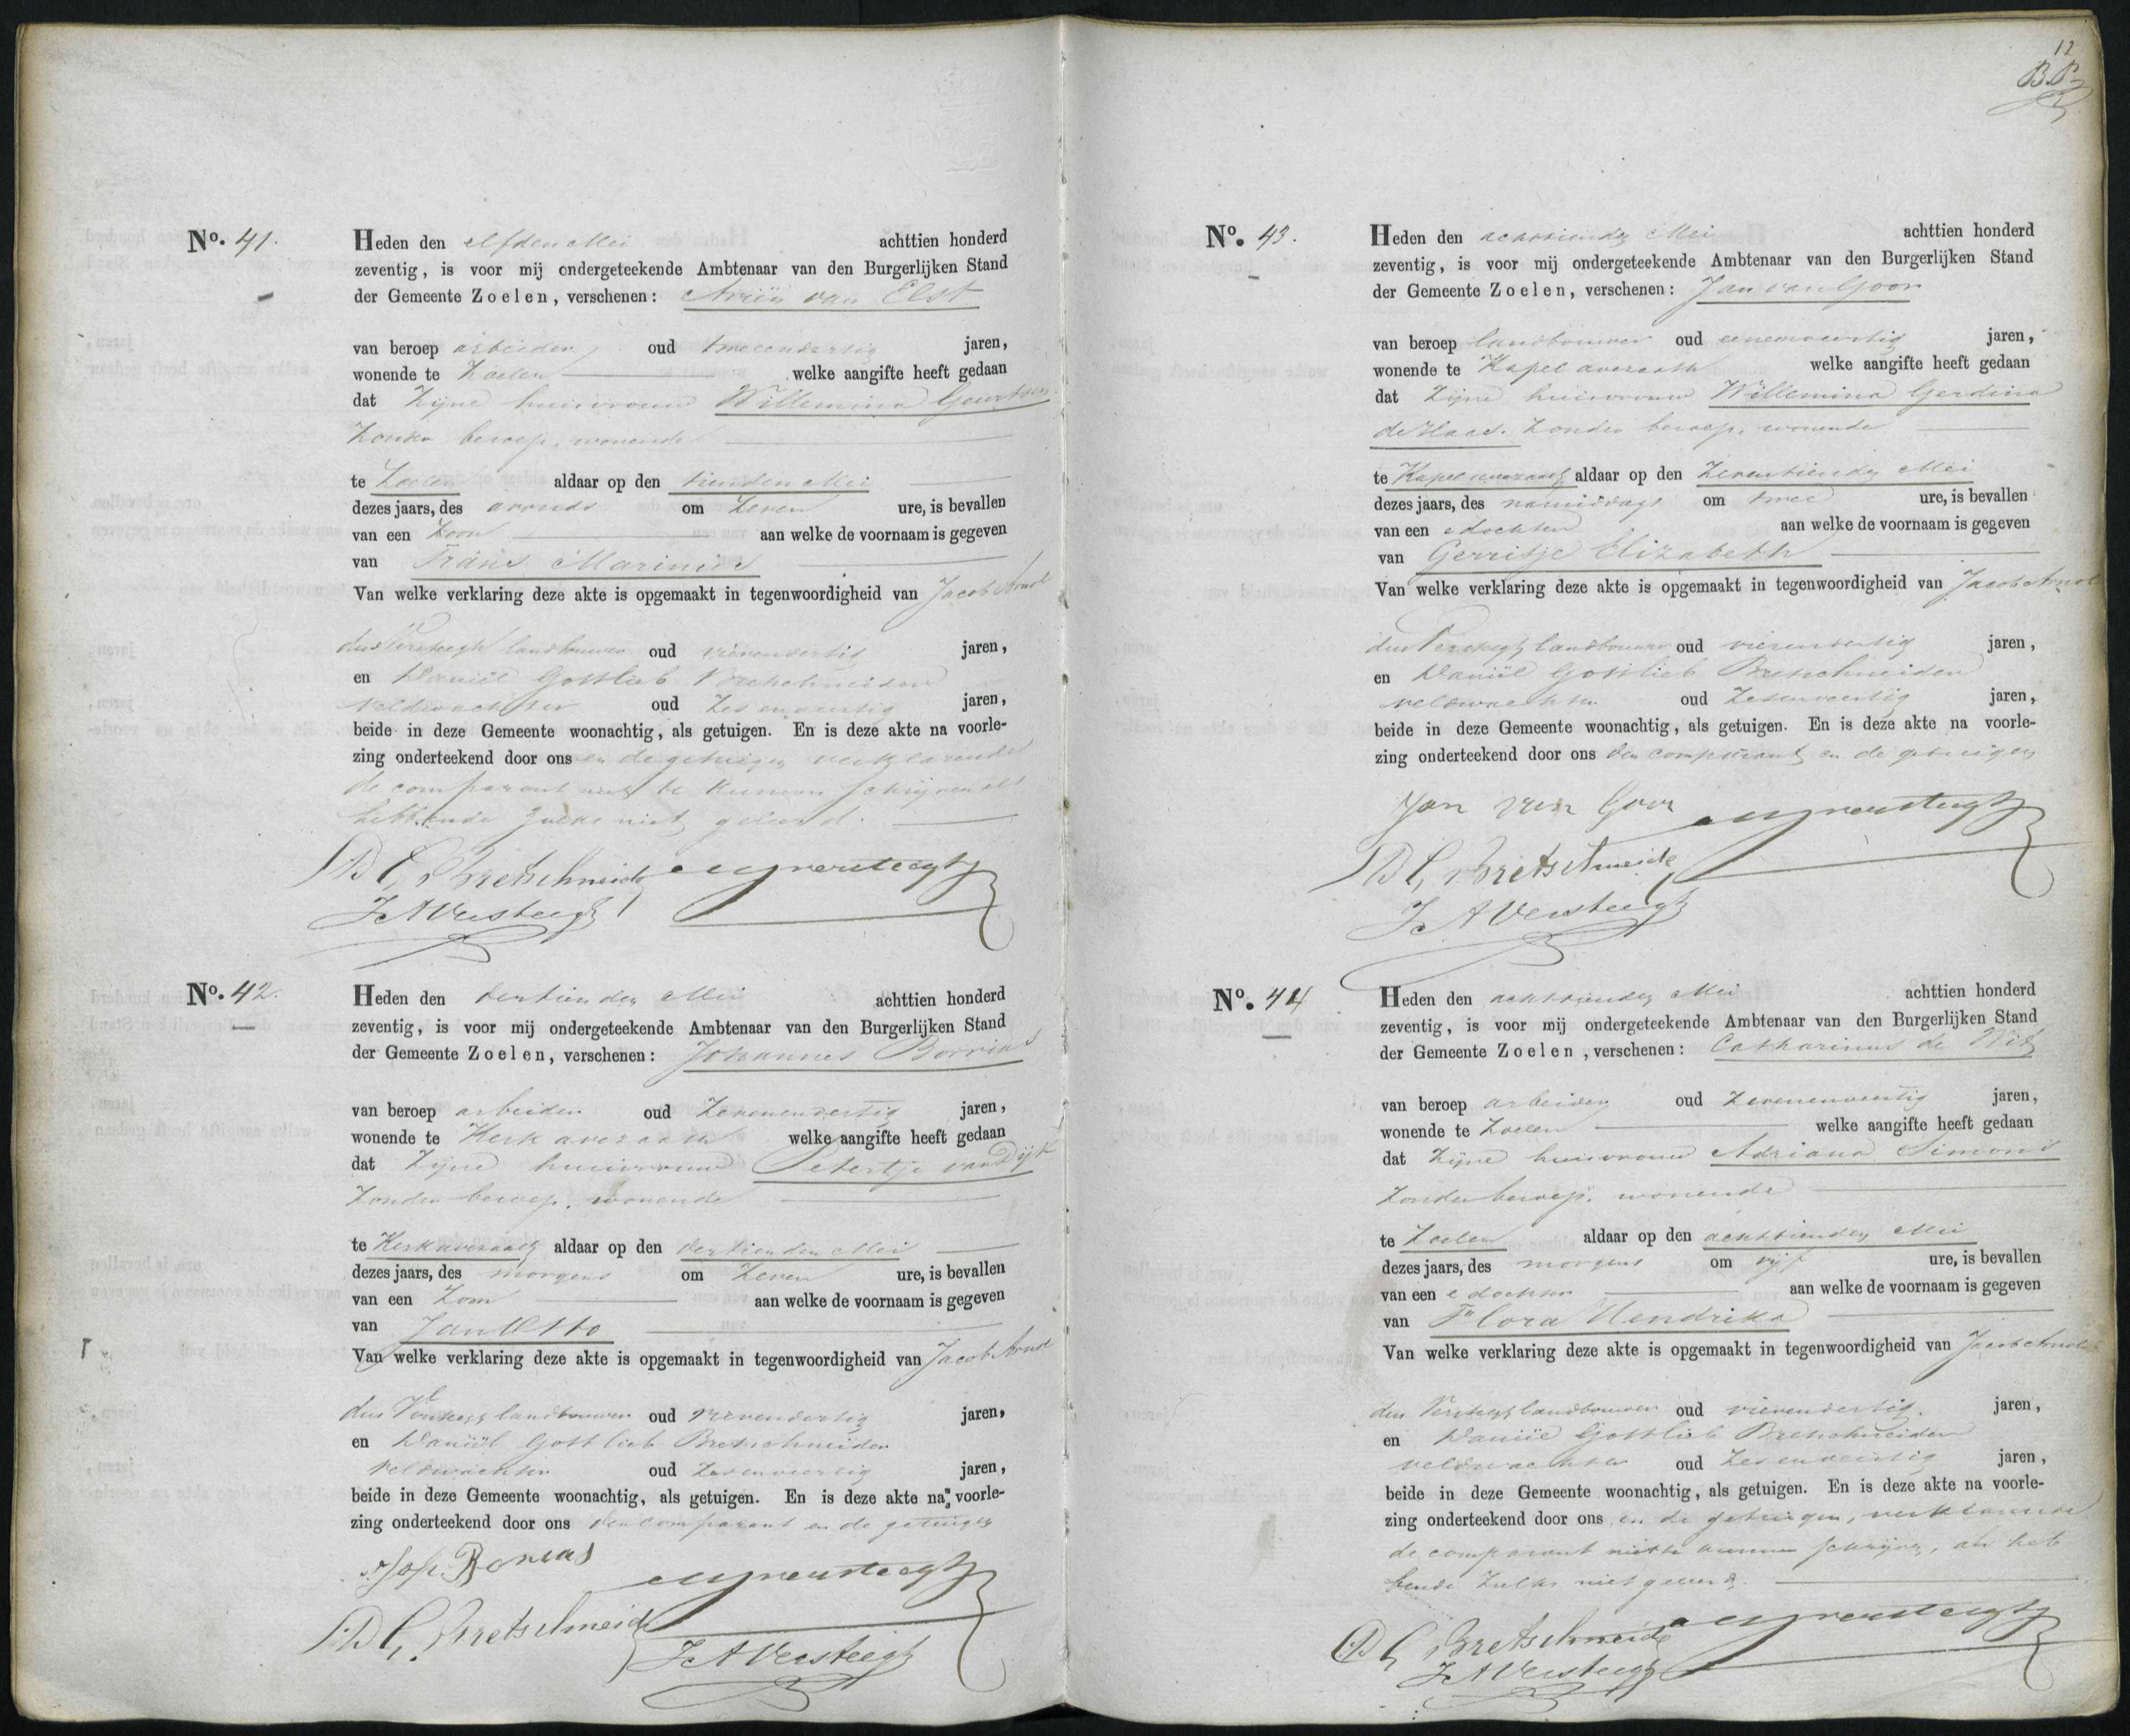 12
B.P.
No. 41.
Heden den elfden Mei achttien honderd
zeventig, is voor mij ondergeteekende Ambtenaar van den Burgerlijken Stand
der Gemeente Zoelen, verschenen: Ariën van Elst
van beroep arbeider, oud tweeendertig jaren,
wonende te Zoelen welke aangifte heeft gedaan
dat Zijne huisvrouw Willemina Geurtsen
Zonder beroep, wonende
te Zoelen aldaar op den tienden Mei
dezes jaars, des avonds om Zeven ure, is bevallen
van een Zoon aan welke de voornaam is gegeven
van Frans Marinus
Van welke verklaring deze akte is opgemaakt in tegenwoordigheid van Jacob Arnol
dus Versteegh landbouwer oud vierendertig jaren,
en Daniël Gottlieb Bretschneider
veldwachter oud Zesenveertig jaren,
beide in deze Gemeente woonachtig, als getuigen. En is deze akte na voorle-
zing onderteekend door ons en de getuigen verklarende
de comparant niet te kunnen schrijven als
hebbende zulks niet geleerd.
D G Bretschneider versteegh
J A Versteegh
No. 42.
Heden den dertienden Mei achttien honderd
zeventig, is voor mij ondergeteekende Ambtenaar van den Burgerlijken Stand
der Gemeente Zoelen, verschenen: Johannes Borrias
van beroep arbeider oud Zevenendertig jaren,
wonende te Kerk avezaath welke aangifte heeft gedaan
dat Zijne huisvrouw Petertje van Dijk
Zonder beroep, wonende
te Kerkavezaath aldaar op den dertienden Mei
dezes jaars, des morgens om Zeven ure, is bevallen
van een Zoon aan welke de voornaam is gegeven
van Jan Otto
Van welke verklaring deze akte is opgemaakt in tegenwoordigheid van Jacob Arnol
dus Versteegh landbouwer oud vierendertig jaren,
en Daniël Gottlieb Bretschneider
veldwachter oud Zesenveertig jaren,
beide in deze Gemeente woonachtig, als getuigen. En is deze akte na voorle-
zing onderteekend door ons den comparant en de getuigen
Joh. Borrias
versteegh
D G. Bretschneider
J A Versteegh
No. 43.
Heden den achttienden Mei achttien honderd
zeventig, is voor mij ondergeteekende Ambtenaar van den Burgerlijken Stand
der Gemeente Zoelen, verschenen: Jan van Goor
van beroep landbouwer oud eenenveertig jaren,
wonende te Kapel avezaath welke aangifte heeft gedaan
dat Zijne huisvrouw Willemina Gerdina
de Haas. Zonder beroep, wonende
te Kapel avezaath aldaar op den Zeventienden Mei
dezes jaars, des namiddags om twee ure, is bevallen
van een e dochter aan welke de voornaam is gegeven
van Gerritje Elizabeth
Van welke verklaring deze akte is opgemaakt in tegenwoordigheid van Jacob Arnol
dus Versteegh landbouwer oud vierendertig jaren,
en Daniël Gottlieb Bretschneider
veldwachter oud Zesenveertig jaren,
beide in deze Gemeente woonachtig, als getuigen. En is deze akte na voorle-
zing onderteekend door ons den comparant en de getuigen
Jan van Goor versteegh
D G Bretschneider
J A Versteegh
No. 44
Heden den achttienden Mei achttien honderd
zeventig, is voor mij ondergeteekende Ambtenaar van den Burgerlijken Stand
der Gemeente Zoelen, verschenen: Catharinus de Wit
van beroep arbeider oud Zevenenveertig jaren,
wonende te Zoelen welke aangifte heeft gedaan
dat Zijne huisvrouw Adriana Simons
Zonder beroep, wonende
te Zoelen aldaar op den achttienden Mei
dezes jaars, des morgens om vijf ure, is bevallen
van een e dochter aan welke de voornaam is gegeven
van Flora Hendrika
Van welke verklaring deze akte is opgemaakt in tegenwoordigheid van Jacob Arnol
dus Versteegh landbouwer oud vierendertig. jaren,
en Daniël Gottlieb Bretschneider
veldwachter oud Zesenveertig jaren,
beide in deze Gemeente woonachtig, als getuigen. En is deze akte na voorle-
zing onderteekend door ons en de getuigen, verklarende
de comparant niet te kunnen schrijven, als heb
bende zulks niet geleerd.
D G Bretschneider versteegh
J A Versteegh